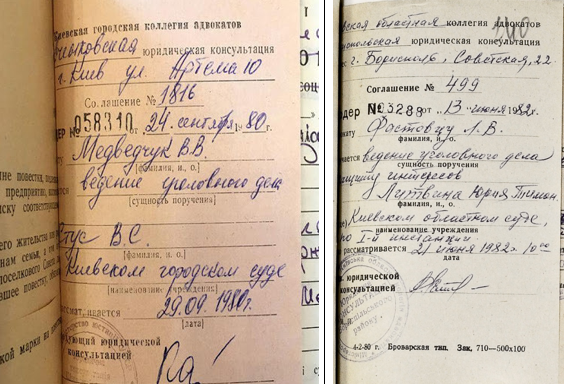 Киевская городская коллегия адвокатов
юридическая консультация
г. Киев ул. Артема 10
Соглашение № 1816
ДЕР № 058310 от 24 сентября 1980 г.
Медведчук В.В.
[фамилия, и., о.]
ведение уголовного дела
[сущность поручения]
Стус В.С.
[фамилия, и., о.]
Киевском городском суде
[наименование учреждения]
29.09.1980г.
[дата]
юридической
консультацией
240
областная коллегия адвокатов
юридическая консультация
г. Борисполь, Советская, 22
Соглашение № 499
рдер № 03288 от 13 июня 1982г.
Фастовцу Л.В.
фамилия, и., о.
ведение уголовного дела
сущность поручения
интересов
Литвина Юрия
фамилия, и., о.
Киевском областном суде,
наименование учреждения
по I-й инстанции
рассматривается 21 июня 1982г. 10 00
дата
юридической
консультацией
4-2-80 г. Броварская тип. Зак. 710—500х100